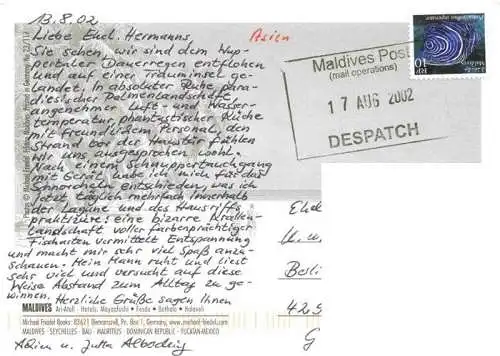 13.8.02
Liebe Ehel. Hermanns,
Asien
Sie sehen, wir sind dem Wup-
pertaler Dauerregen entflohen
und auf einer Trauminsel ge-
landet. In absoluter Ruhe, para-
diesischer Palmenlandschaft
angenehmer Luft- und Wasser-
temperatur, phantastischer Küche
mit freundlichem Personal, den
Strand vor der Haustür fühlen
wir uns ausgesprochen wohl.
Nach einem Schnuppertauchgang
mit Gerät habe ich mich für das
Schnorcheln entschieden, was ich
jetzt täglich mehrfach innerhalb
der Lagune und des Hausriffs
praktiziere: eine bizarre Korallen-
landschaft voller farbenprächtiger
Fischarten vermittelt Entspannung
und macht mir sehr viel Spaß anzu-
schauen. Mein Mann ruht und liest
sehr viel und versucht auf diese
Weise Abstand zum Alltag zu ge-
winnen. Herzliche Grüße sagen Ihnen
MALDIVES Ari-Atoll · Hotels: Mayaafushi · Fesdu · Bathala · Halaveli
Michael Friedel Books · 83621 Dietramszell, Pn. Box 1, Germany, www.michael-friedel.com
MALDIVES · SEYCHELLES · BALI · MAURITIUS · DOMINICAN REPUBLIC · YUCATAN-MEXICO
u. Jutta
Maldives Post
(mail operations)
17 AUG 2002
DESPATCH
10
Ehel
U. u
Berli
425
G